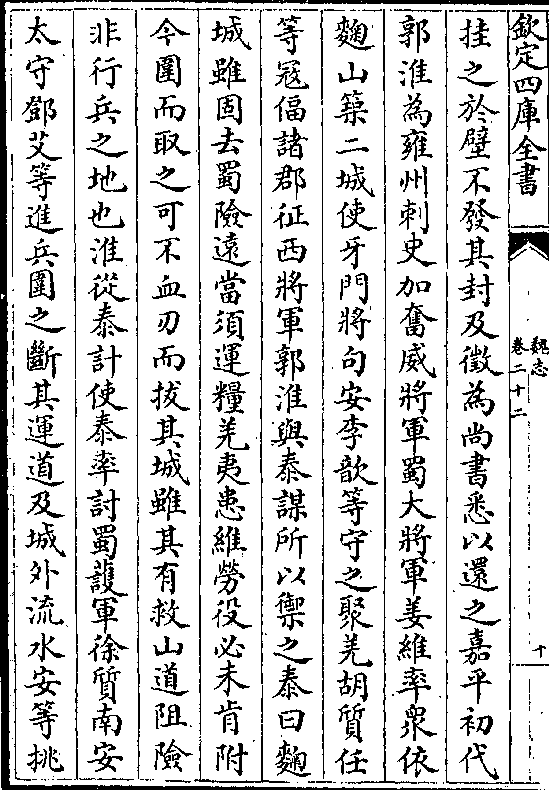 欽定四庫全書
魏志
卷二十二
十
挂之於壁不發其封及徵為尚書悉以還之嘉平初代
郭淮為雍州刺史加奮威將軍蜀大將軍姜維率衆依
麴山築二城使牙門將句安李歆等守之聚羌胡質任
等冦偪諸郡征西將軍郭淮與泰謀所以禦之泰曰麴
城雖固去蜀險遠當須運糧羌夷患維勞役必未肯附
今圍而取之可不血刃而拔其城雖其有救山道阻險
非行兵之地也淮從泰計使泰率討蜀䕶軍徐質南安
太守鄧艾等進兵圍之斷其運道及城外流水安等挑